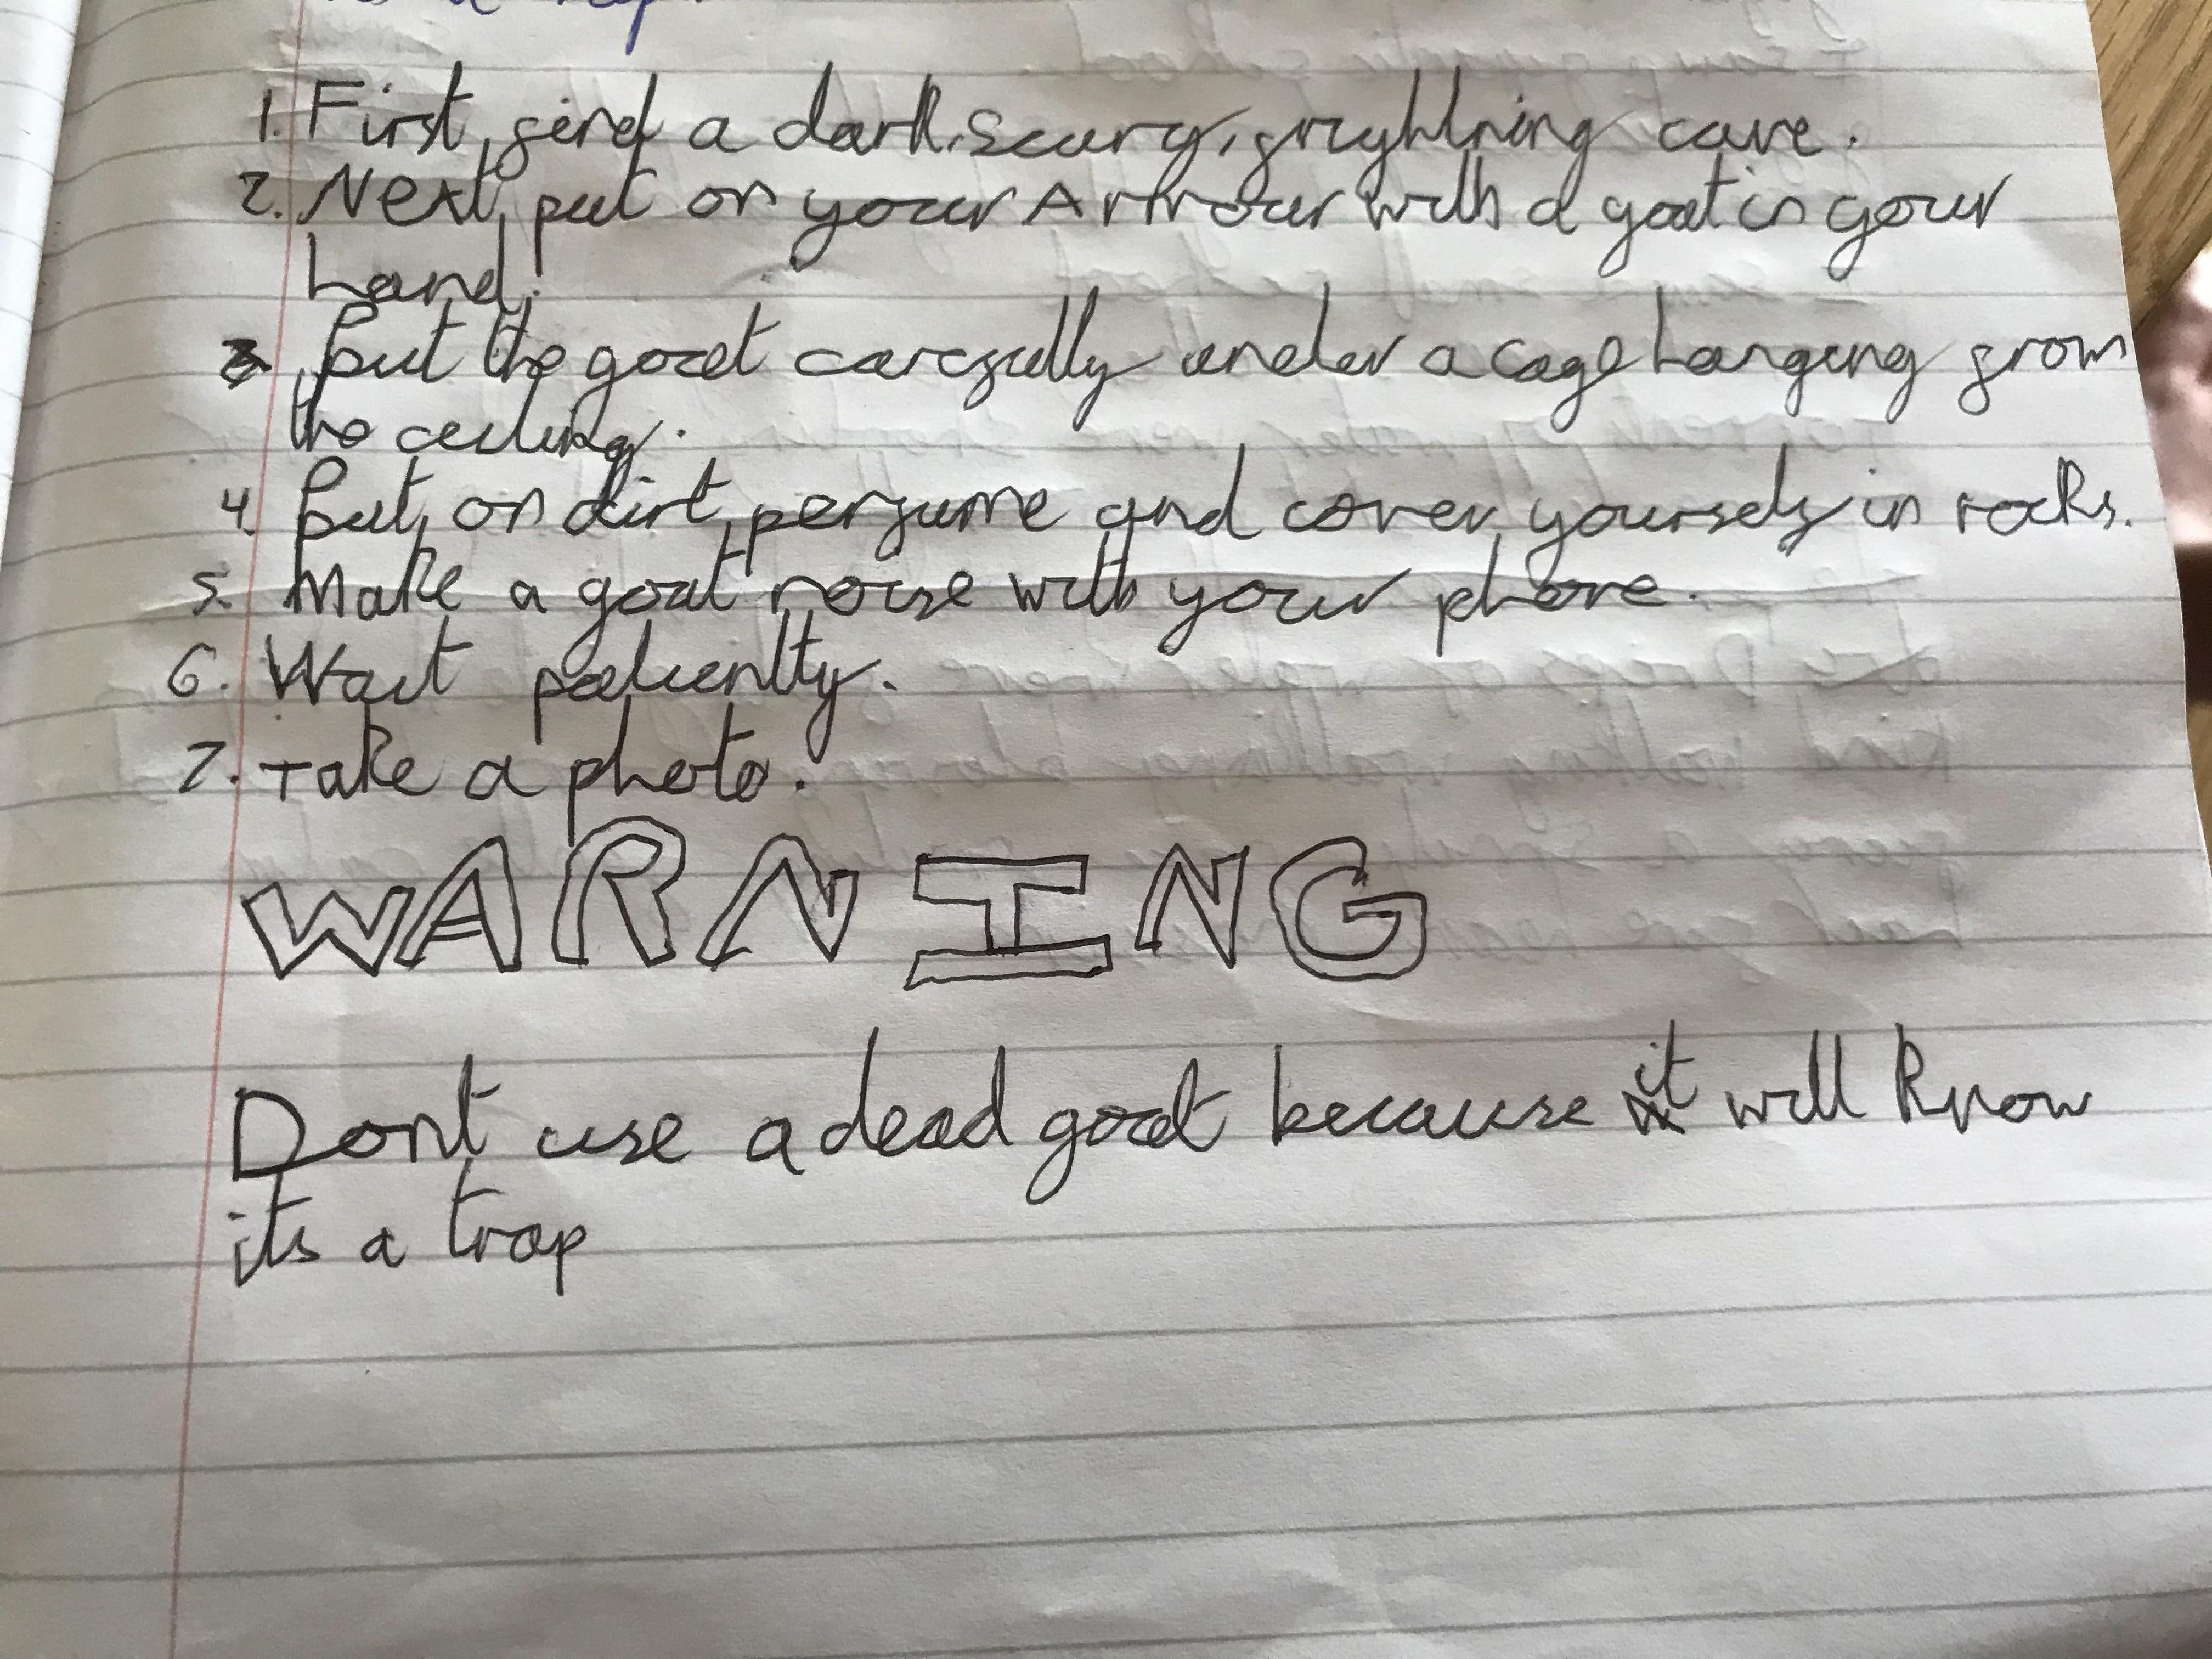 1. First, find a dark, scary, frightning cave.
2. Next, put on your Armour with a goat in your
hand.
3 Put the goat carefully under a cage hanging from
the ceiling.
4. Put on dirt perfume and cover yourself in rocks.
5. Make a goat noise with your phone.
6. Wait patiently.
7. Take a photo.
WARNING
Dont use a dead goat because it will know
its a trap